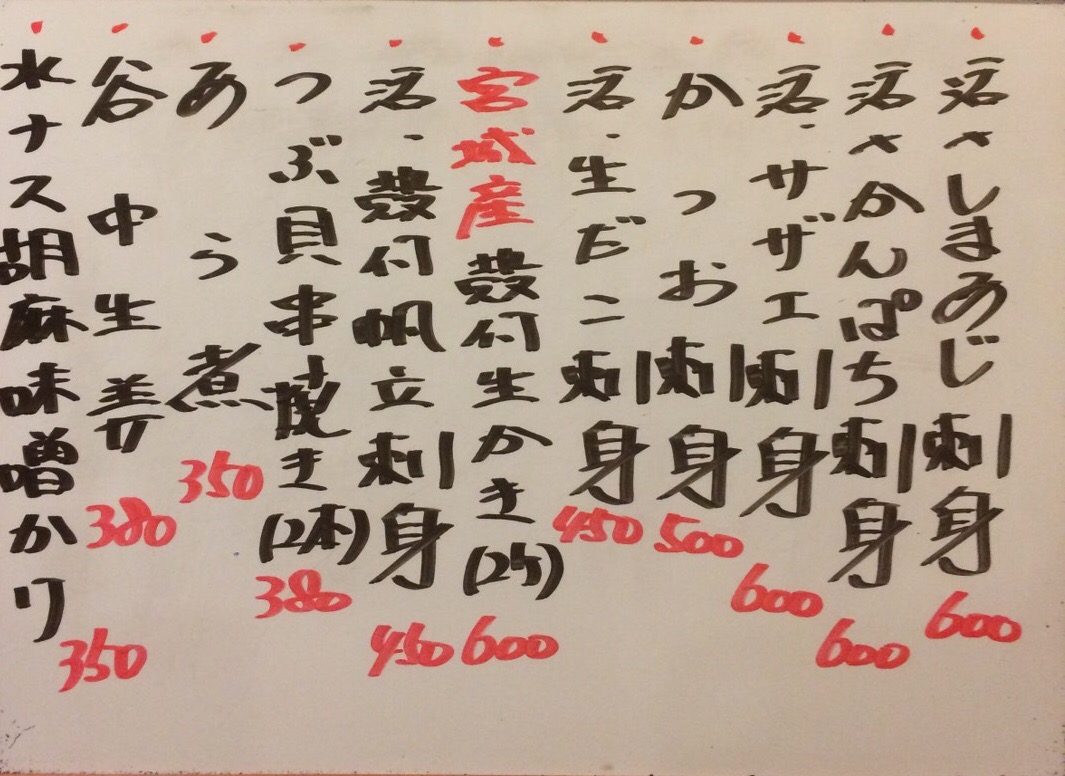 活〻しまあじ刺身 600
活〻かんぱち刺身 600
活・サザエ刺身 600
かつお刺身 500
活・生だこ刺身 450
宮城産殻付生かき(2ケ) 600
活・殻付帆立刺身 450
つぶ貝串焼き(2本) 380
あら煮 350
谷中生姜 380
水ナス胡麻味噌かけ 350